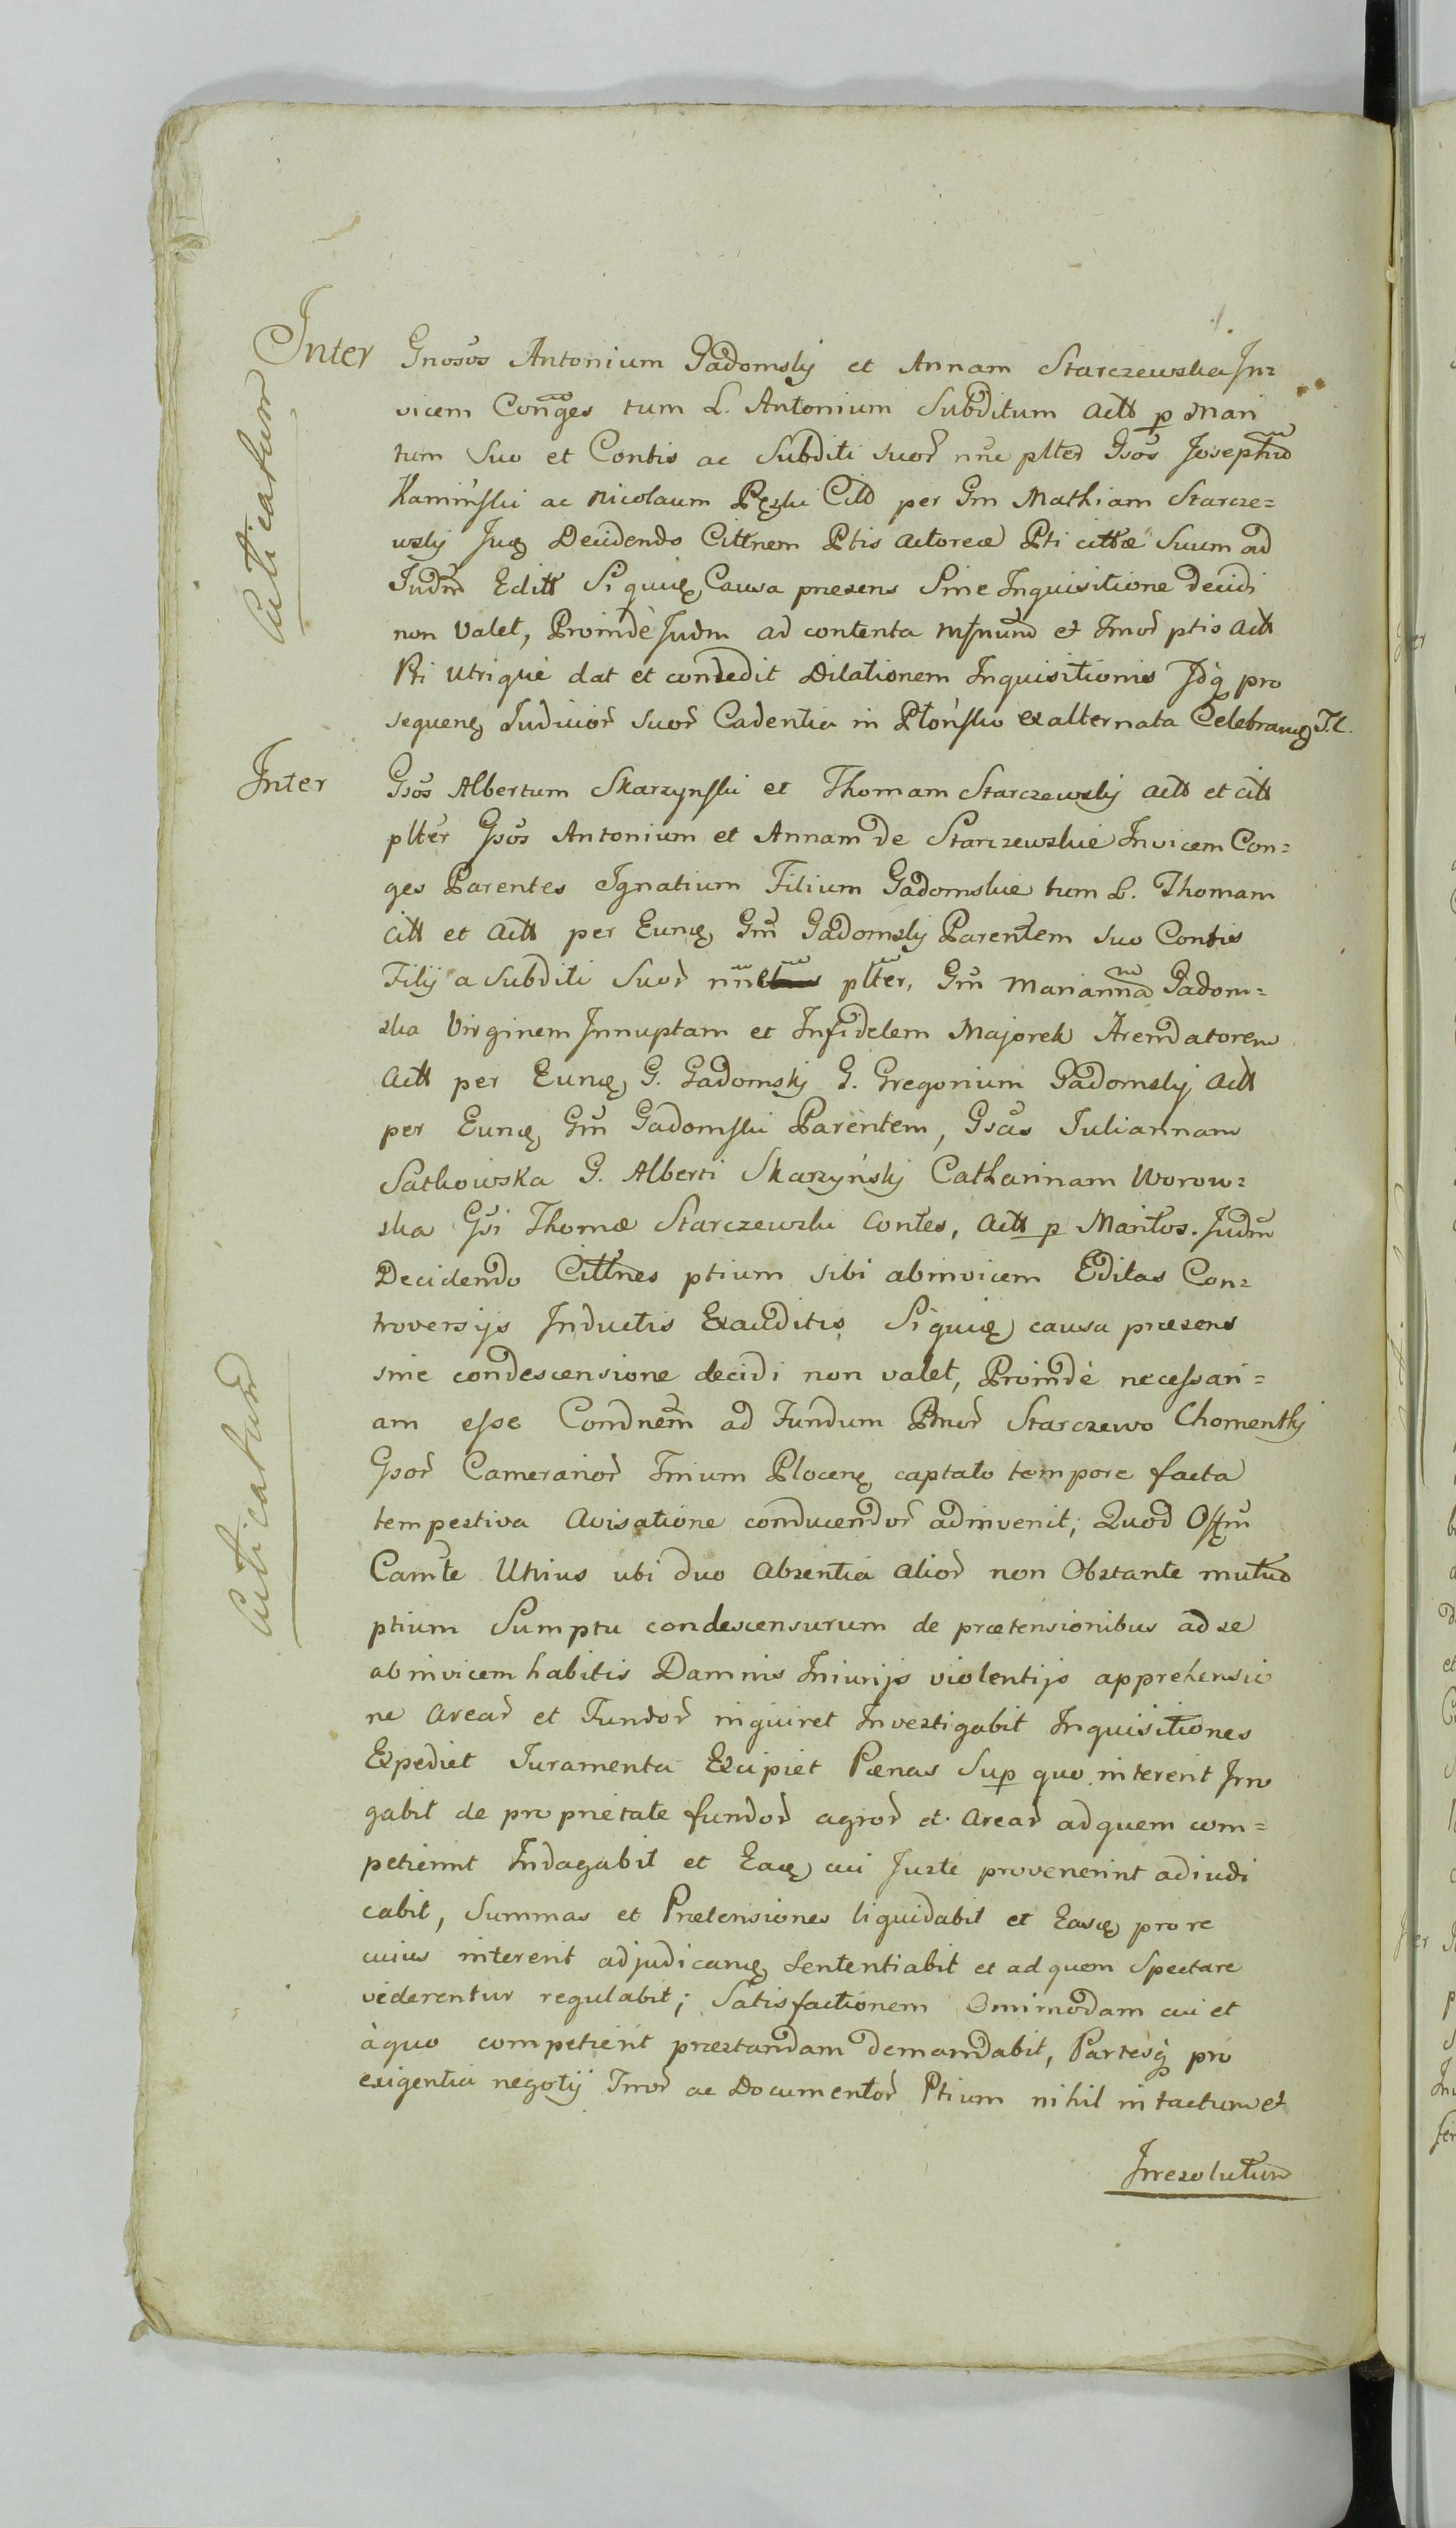 Inter Gnosos Antonium Gadomsky et Annam Starczewska In=
vicem Conges tum L. Antonium Subditum actt p Mari
tum Suo et Contis ac Subditi suor nne plter Gsos Josephum
Kaminski ac Nicolaum Pęski Citt per Gm Mathiam Starcze=
wsky Decidendo Cittnem Ptis actoreæ Pti cittæ Suum ad
Judm Editt Siquię Causa præsens Sine Inquisitione decidi
non Valet, Proindè Judm ad contenta et Jmor ptis actt
Pti Utrique dat et concedit Dilationem Inquisitionis Idq pro
sequenę Judicior suor Cadentia in Płońsko ex alternata Celebranę T.C.
Acticatum
Inter Gsos Albertum Skarzynski et Thomam Starczewsky actt et citt
plter Gsos Antonium et Annam de Starczewskie Invicem Con=
ges Parentes Ignatium Filium Gadomskie tum L. Thomam
citt et actt per Eunę Gm Gadomsky Parentem suo Contis
Filij a subditi Suor nne plter, Gm Marianna Gadom=
ska Virginem Innuptam et Infidelem Majorek Arendatorem
actt per Eunę G. Gadomsky G. Gregorium Gadomsky actt
per Eunę Gm Gadomski Parentem, Gsas Juliannam
Satkowska G. Alberti Skarzyńsky Catharinam Worow=
ska Gsi Thomæ Starczewski Contes, actt p Maritos. Judm
Decidendo Cittnes ptium sibi abinvicem Editas Con=
troversijs Inductis Exauditis Siquię causa præsens
sine condescensione decidi non valet, Proindè necessari=
am esse Condnem ad Fundum Bnor Starczewo Chomentky
Gsor Camerarior Trium Plocenę captato tempore facta
tempestiva avisatione conducendor adinvenit; Quod Offm
Camte Unius ubi duo absentia alior non Obstante mutuo
ptium Sumptu condescensurum de prætensionibus ad se
abinvicem habitis Damnis Iniurijs violentijs apprehensio
ne arear et Fundor inquiret Investigabit Inquisitiones
Expediet Juramenta Excipiet Pænas Sup quo intererit Irro
gabit de proprietate fundor agror et arear ad quem com=
petierint Indagabit et Eaę cui Juste provenerint adiudi
cabit, Summas et Prætensiones liquidabit et Easę pro re
cuius intererit adjudicanę Sententiabit et ad quem Spectare
viderentur regulabit; Satisfactionem Omimodam cui et
àquo competierit præstandam demandabit, Partesq pro
exigentia negotij Jmor ac Documentor Ptium nihil intactum et
Irresolutum
Acticatum